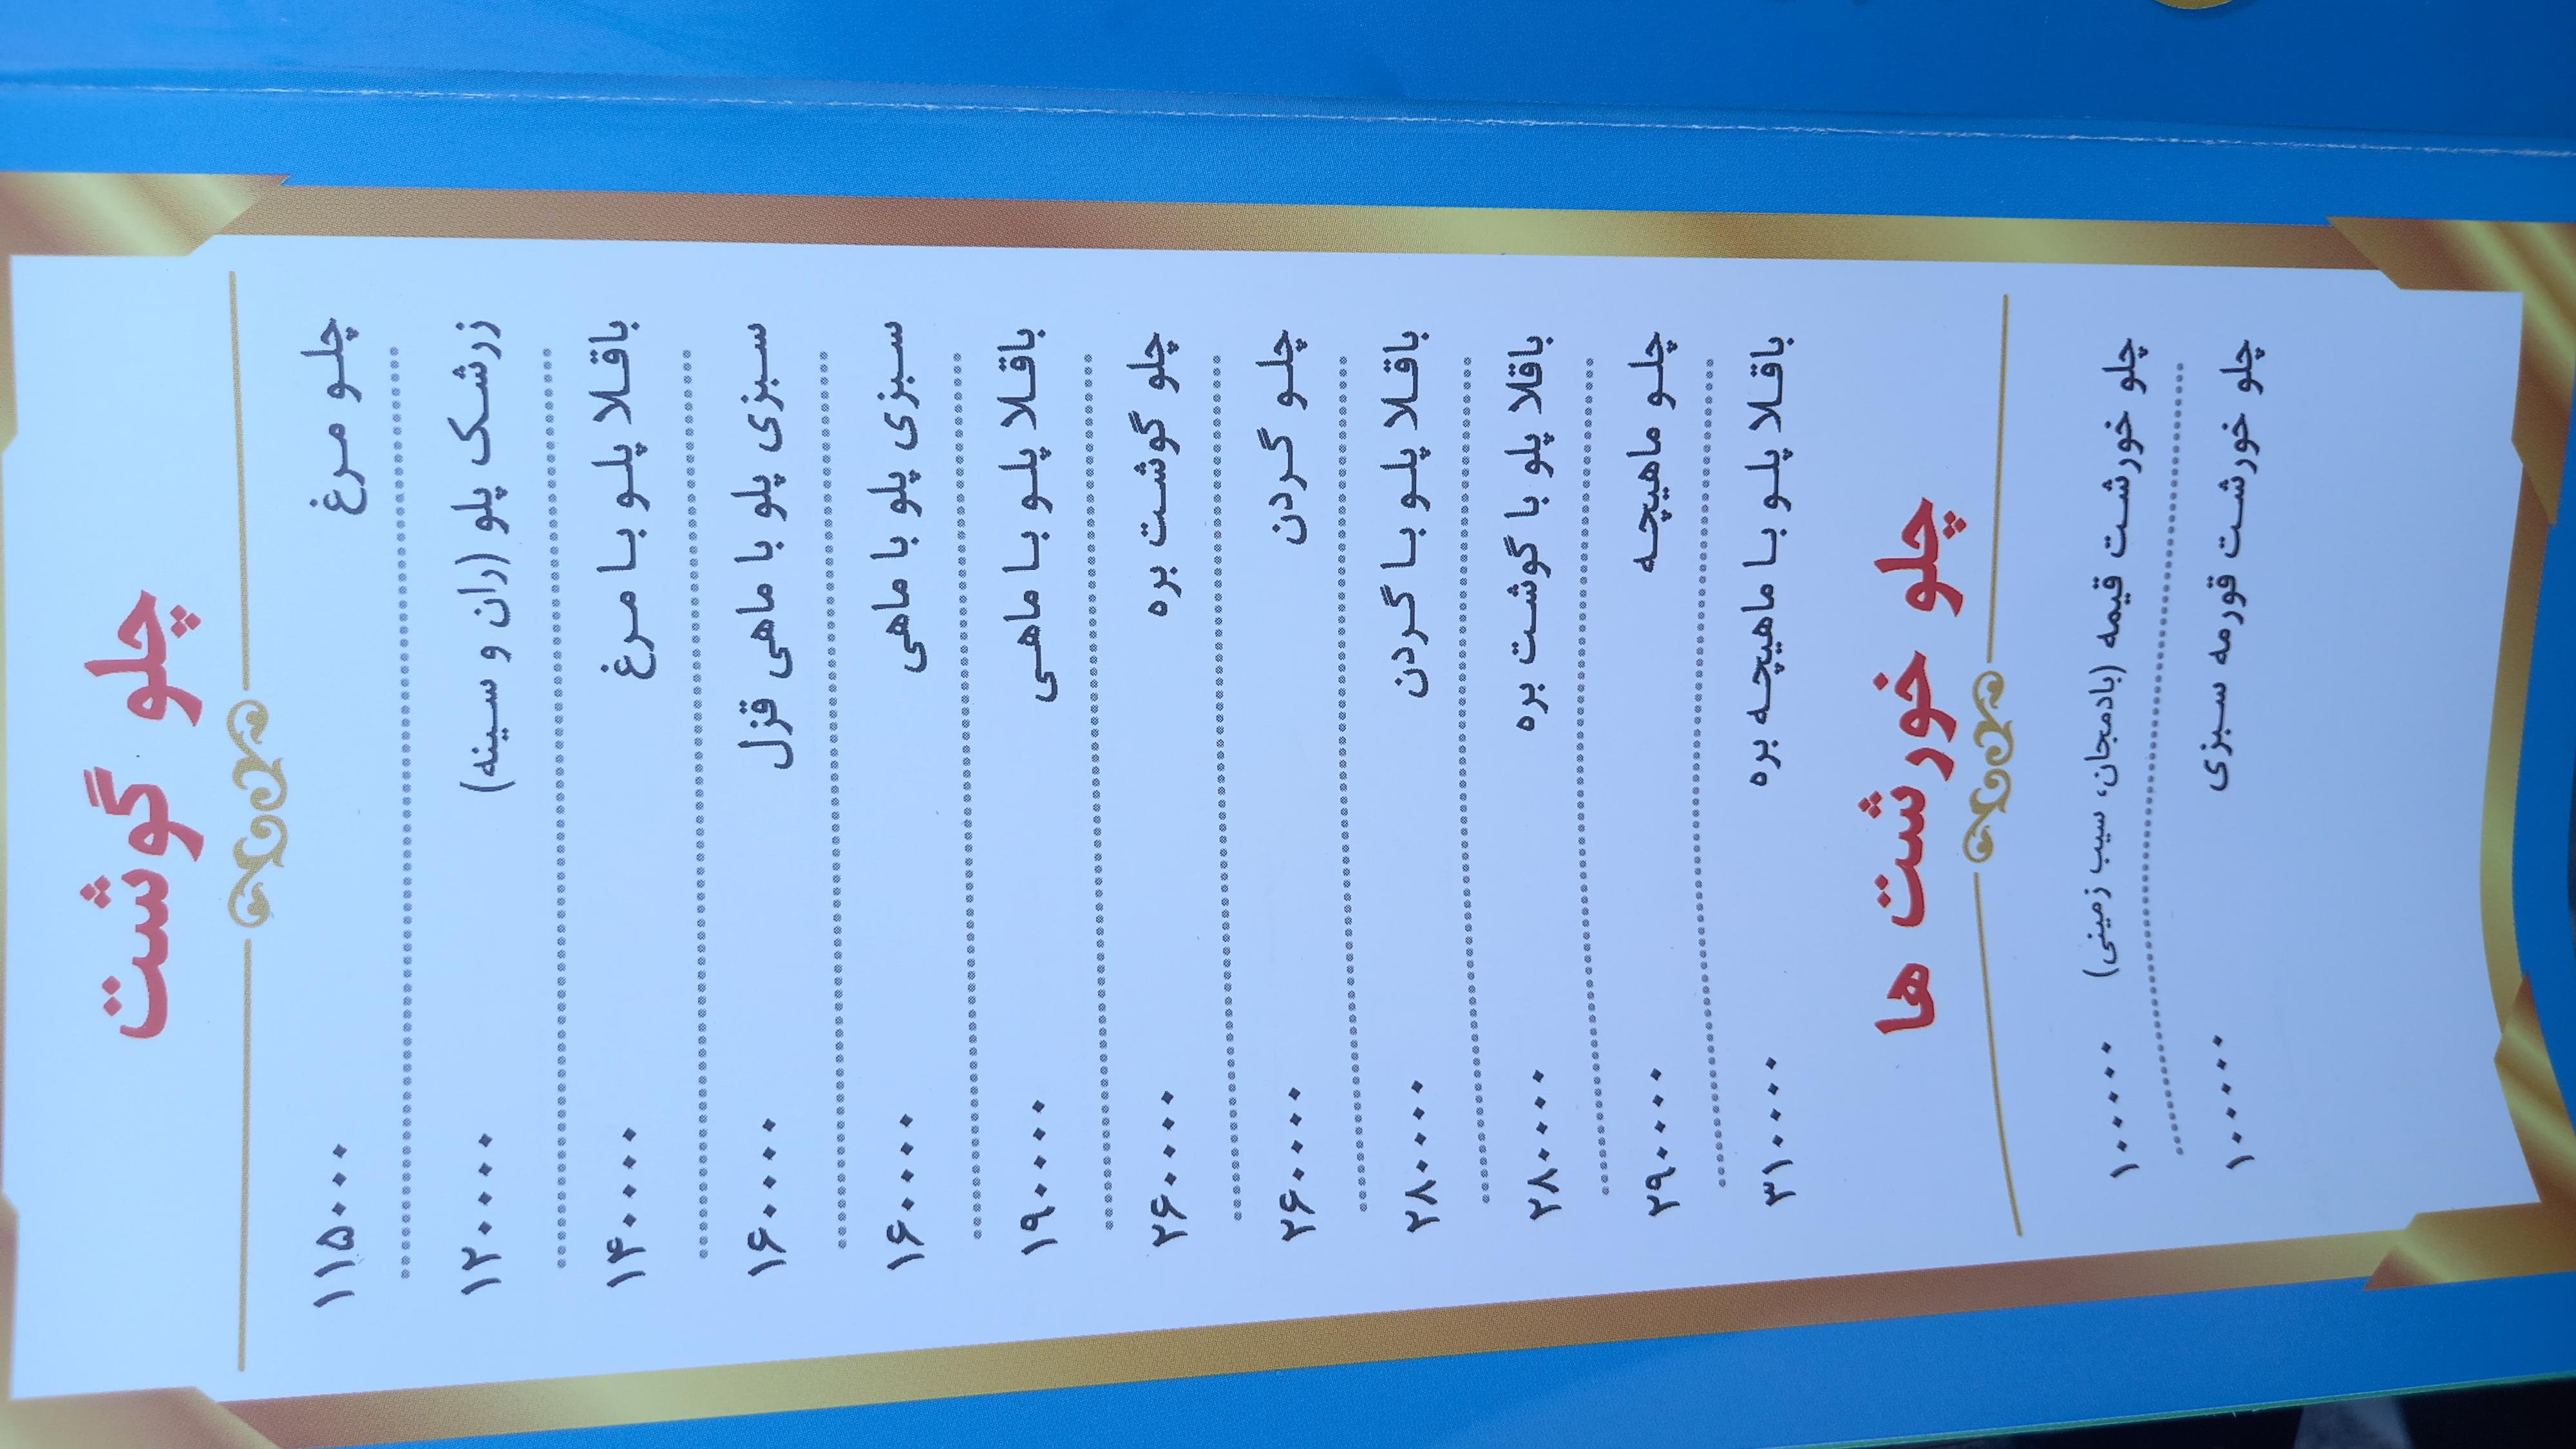 چلو گوشت
چلو مرغ ۱۱۵۰۰۰
زرشک پلو (ران و سینه) ۱۲۰۰۰۰
باقلا پلو با مرغ ۱۴۰۰۰۰
سبزی پلو با ماهی قزل ۱۶۰۰۰۰
سبزی پلو با ماهی ۱۶۰۰۰۰
باقلا پلو با ماهی ۱۹۰۰۰۰
چلو گوشت بره ۲۶۰۰۰۰
چلو گردن ۲۶۰۰۰۰
باقلا پلو با گردن ۲۸۰۰۰۰
باقلا پلو با گوشت بره ۲۸۰۰۰۰
چلو ماهیچه ۲۹۰۰۰۰
باقلا پلو با ماهیچه بره ۳۱۰۰۰۰
چلو خورشت ها
چلو خورشت قیمه (بادمجان، سیب زمینی) ۱۰۰۰۰۰
چلو خورشت قورمه سبزی ۱۰۰۰۰۰